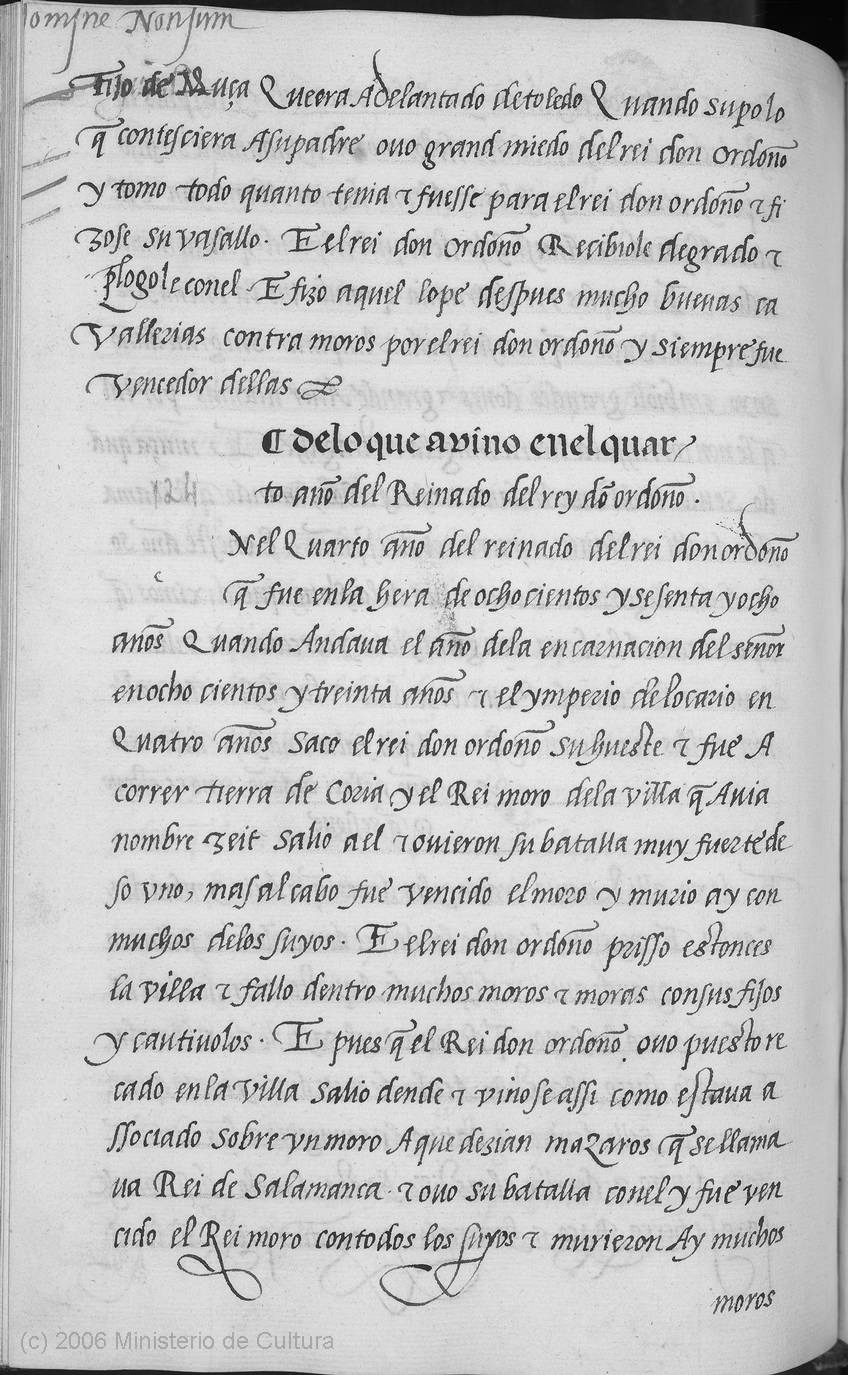 omjne Nonsum
Fijo de Muça Queera Adelantado detoledo Quando supolo
q̃ contesçiera Asupadre ovo grand miedo delrei don ordoño
y tomo todo quanto tenia ⁊ fuesse para elrei don ordoño ⁊ fi
zose su vasallo. E elrei don ordoño Reçibiole degrado ⁊
plogole conel. E fizo aquel lope despues mucho buenas ca
vallerias contra moros por elrei don ordoño y siempre fue
vencedor dellas
¶ deloque avino enelquar/
to año del Reinado del rey dō ordoño.
Nel Quarto año del reinado delrei don ordoño
e
q̃ fue enla hera de ochoçientos ysesenta yocho
años Quando Andava el año dela encarnacion del señor
enocho cientos ytreinta años ⁊ elymperio delocario en
Quatro años saco elrei don ordoño su hueste ⁊ fue A
correr tierra de Coria y el Rei moro dela villa q̃ Avia
nombre zeit salio ael ⁊ ovieron su batalla muy fuerte de
so vno, mas alcabo fue vencido elmoro y murio ay con
muchos delos suyos. E elrei don ordoño prisso estonces
la villa ⁊ fallo dentro muchos moros ⁊ moras consus fijos
y cautivolos. E pues q̃ el Rei don ordoño ovo puesto re
cado enla villa salio dende ⁊ vinose assi como estava a
ssociado sobre vn moro Aque dezian mazaros q̃ sellama
va Rei de Salamanca ⁊ ovo su batalla conel y fue ven
cido el Rei moro contodos los suyos ⁊ murieron Ay muchos
moros
124
(c) 2006 Ministerio de Cultura